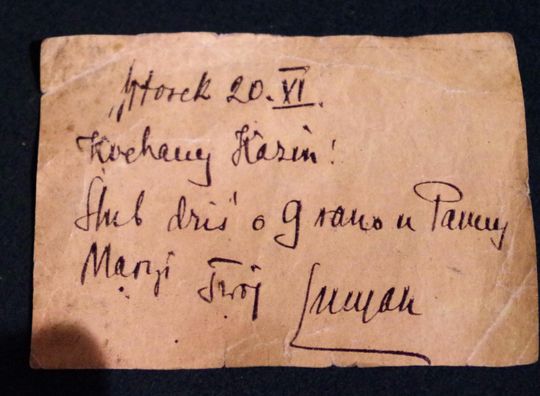 Wtorek 20. XI.
Kochany Kaziu!
Ślub dziś o 9 rano u Panny
Maryi Twój Lucyan